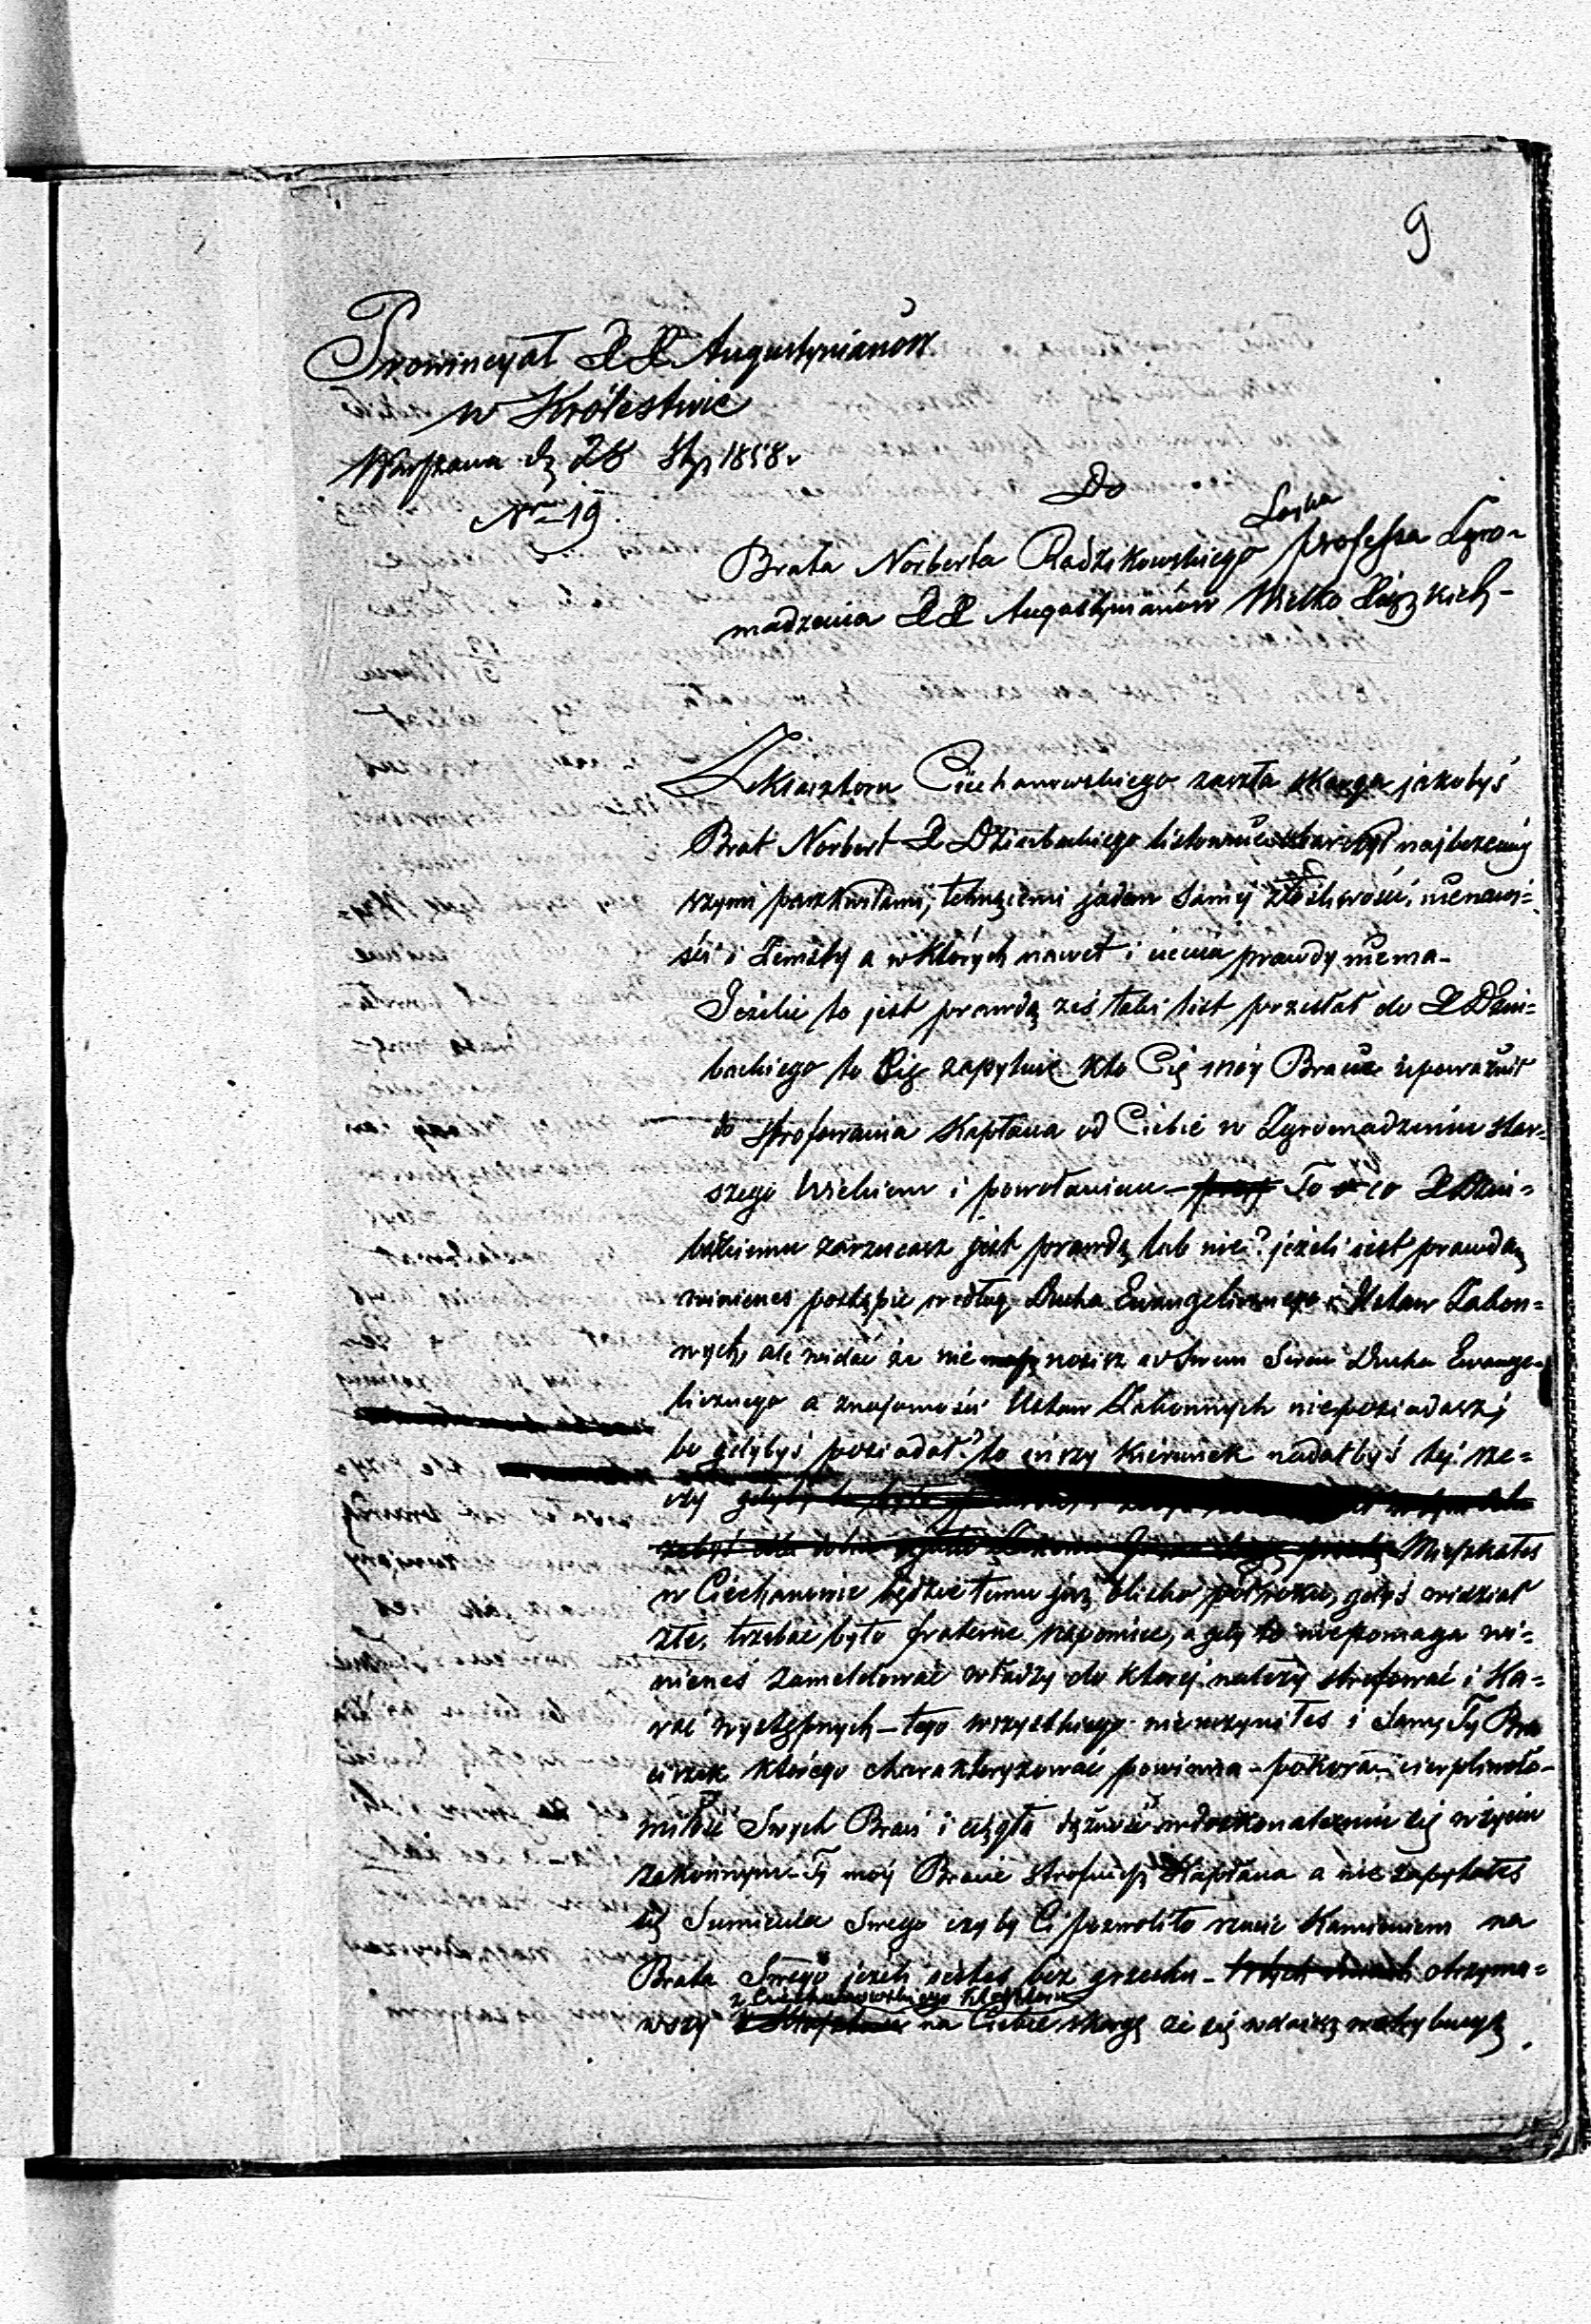 9
Prowincyał XX Augustynianów
w Królestwie
Warszawa d. 28 Sty 1858 r
Nr 19.
Do
Brata Norberta Radzikowskiego Layka professa Zgro-
madzenia XX Augustynianów Wielko
Z klasztoru Ciechanowskiego zaszła skarga jakobyś
Brat Norbert X listownie najbezecniej
szymi paszkwilami, tchnącemi jadem samej złośliwości, nienawi-
ści i Zemsty a w których nawet i cienia prawdy niema -
Jeżelić to jest prawdą żeś taki list przesłał do X
to Cię zapytuję kto Cię mój Bracie upoważnił
do strofowania Kapłana od Ciebie w Zgromadzeniu star-
szego Wiekiem i powołaniem - To co X
zarzucasz jest prawdą lub nie? jeżeli jest prawdą
winieneś postąpić według Ducha Ewangelicznego i Ustaw Zakon-
nych, ale widać że nie nosisz w Swem Sercu Ducha Ewange-
licznego a znajomości Ustaw Zakonnych nieposiadasz;
bo gdybyś posiadał? to inszy kierunek nadałbyś tej rze-
czy
Mieszkałeś
w Ciechanowie będzie temu już blisko pół roku, gdyś widział
złe, trzebać było fraternie napomnieć, a gdy to niepomaga wi-
nieneś zameldować władzy do której należy strofować i Ka-
rać występnych - tego wszystkiego nieuczyniłeś i Sam Ty Bra
ciszek którego charakteryzować powinna - pokora - cierpliwość -
miłość Swych Braci i ciągła dążność w doskonaleniu się w życiu
zakonnym - Ty mój Bracie strofujesz Kapłana a nie zapytałeś
się Sumienia Swego czy by Ci pozwoliło rzucić Kamieniem na
Brata Swego jeżeli jesteś bez grzechu - otrzyma-
z Ciechanowskiego Klasztoru
wszy na Ciebie skargę że się wdajesz